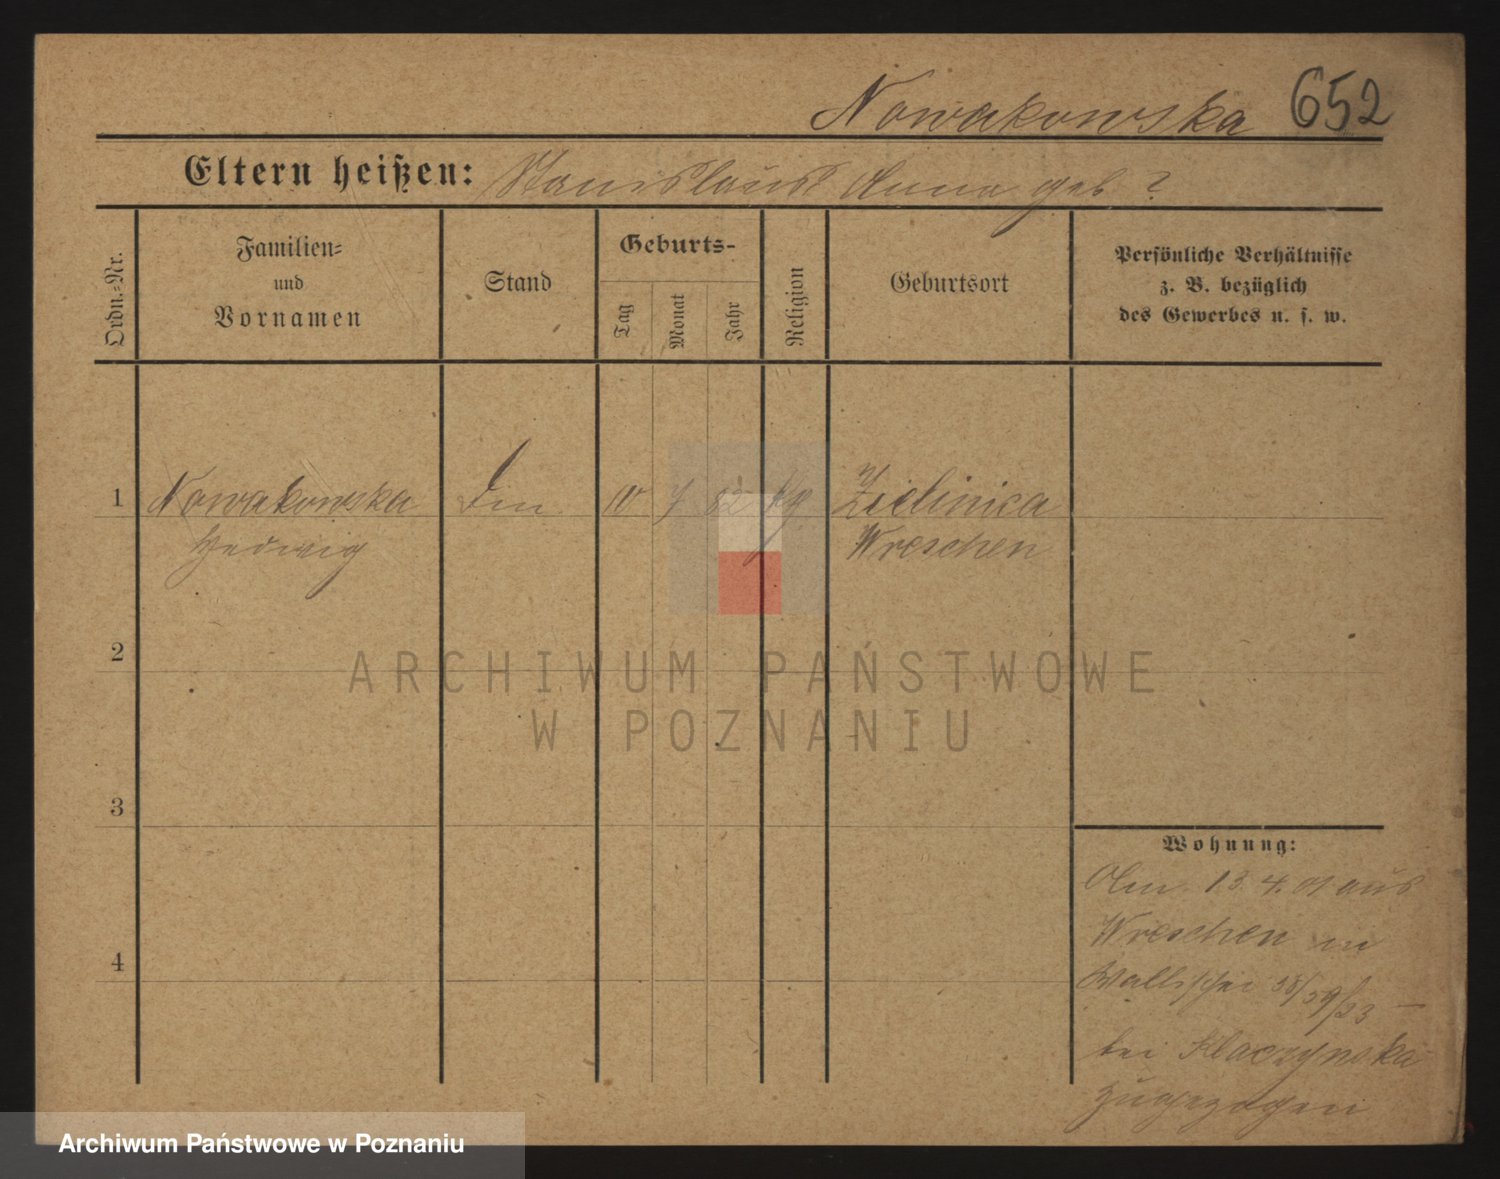 Nowakowska 652
Eltern heißen: Stanislaus Anna geb ?
Ordn.-Nr.
Familien-
und
Vornamen
Stand
Geburts-
Tag
Monat
Jahr
Religion
Geburtsort
Persönliche Verhältnisse
z. B. bezüglich
des Gewerbes u. s. w.
1 Nowakowska 10 7 82 Zielinica
Hedwig Wreschen
2
ARCHIWUM PAŃSTWOWE
W POZNANIU
3
Wohnung:
13.4.01 aus
Wreschen in
4
Wallischei
bei Klaczynska
zugezogen
Archiwum Państwowe w Poznaniu